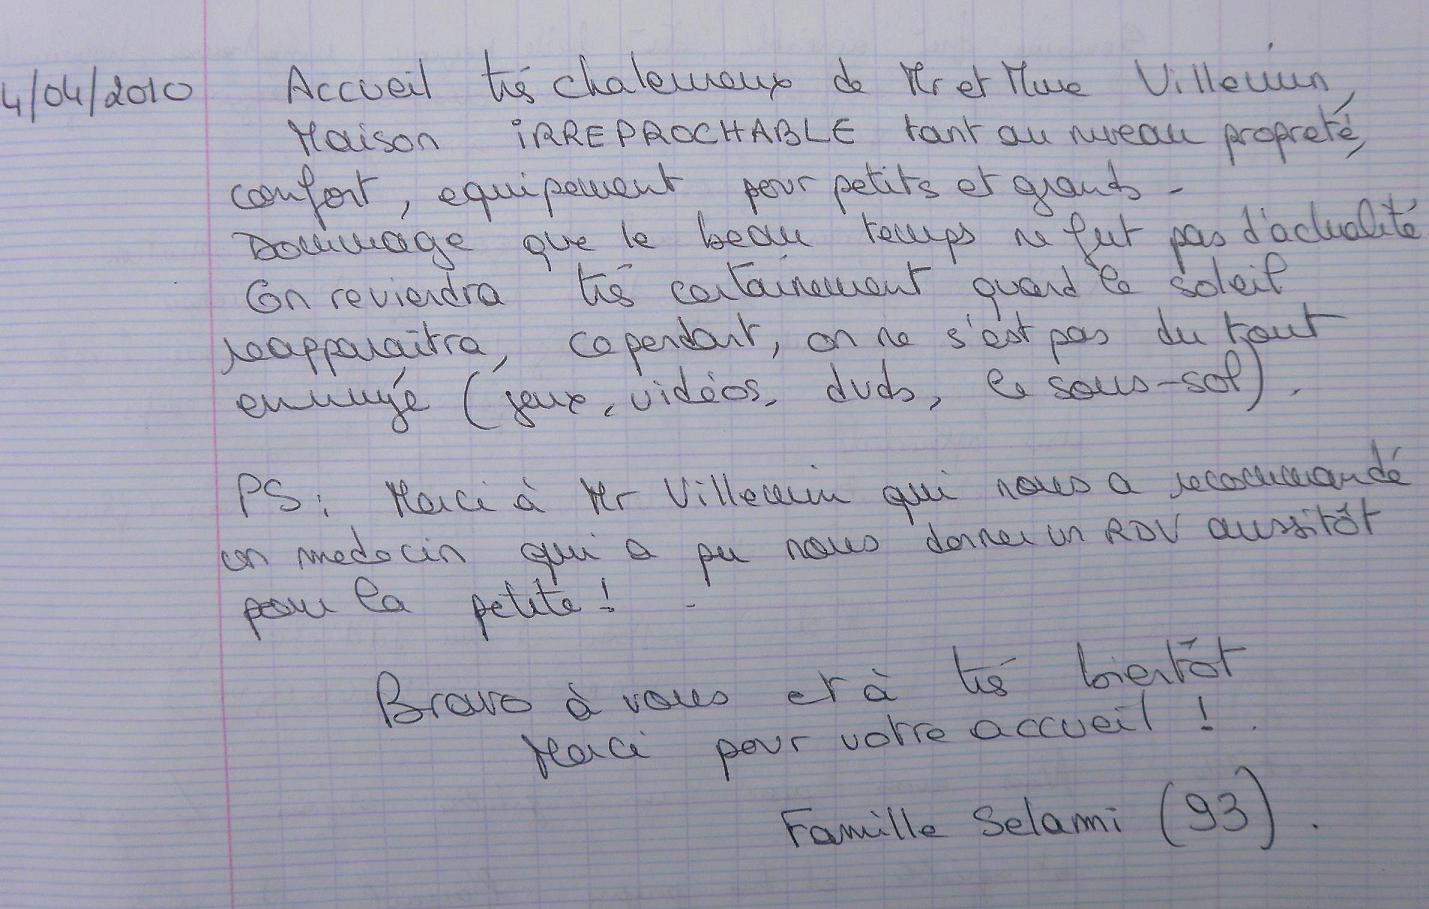 4/04/2010 Accueil très chaleureux de Mr et Mme Villemin,
Maison iRREPROCHABLE tant au niveau propreté,
confort, equipement pour petits et grands -
Dommage que le beau temps ne fut pas d'actualité
On reviendra très certainement quand le soleil
reapparaîtra, cependant, on ne s'est pas du tout
ennuyé (jeux, vidéos, dvds, le sous-sol).
PS : Merci à Mr Villemin qui nous a recommandé
un medecin qui a pu nous donner un RDV aussitôt
pour la petite !
Bravo à vous et à très bientôt
Merci pour votre accueil !
Famille Selammi (93).